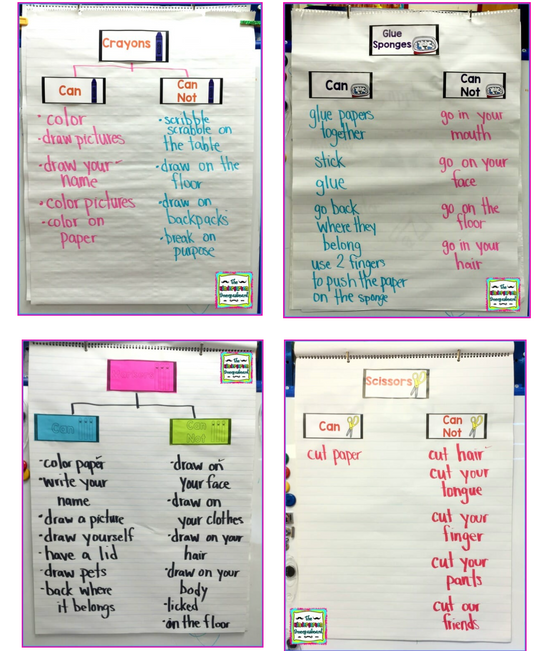 Crayons
Can
Can
Not
· color
· draw pictures
· draw your
name
· color pictures
· color on
paper
· scribble
scrabble on
the table
· draw on the
floor
· draw on
backpacks
· break on
purpose
Glue
Sponges
Can
Can
Not
glue papers
together
stick
glue
go back
where they
belong
use 2 fingers
to push the paper
on the sponge
go in your
mouth
go on your
face
go on the
floor
go in your
hair
the
Kindergarten
Smorgasboard
Can
Can
Not
· color paper
· write your
name
· draw a picture
· draw yourself
· have a lid
· draw pets
· back where
it belongs
· draw on
your face
· draw on
your clothes
· draw on your
hair
· draw on your
body
· licked
· on the floor
Scissors
Can
Can
Not
cut paper
cut hair
cut your
tongue
cut your
finger
cut your
pants
cut our
friends